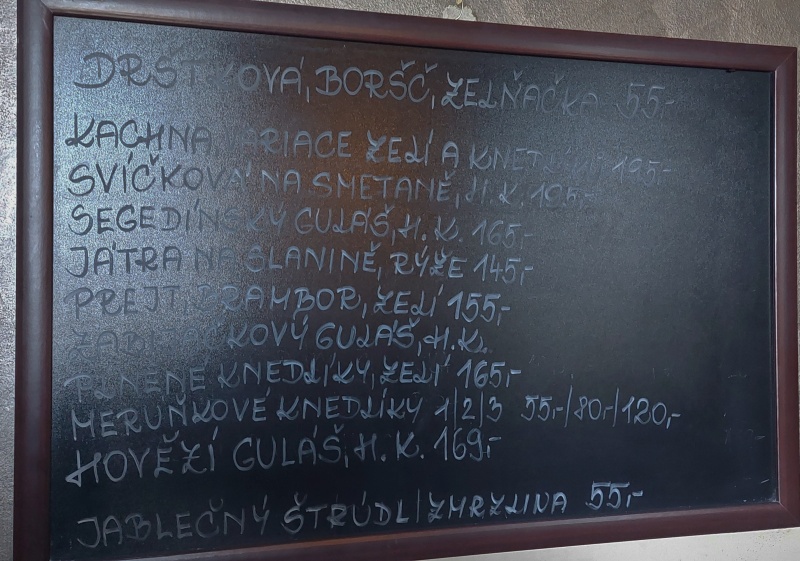 DRŠŤKOVÁ, BORŠČ, ZELŇAČKA 55-
KACHNA, VARIACE ZELÍ A KNEDLÍKŮ 195,-
SVÍČKOVÁ NA SMETANĚ, H.K. 195,-
SEGEDÍNSKÝ GULÁŠ, H.K. 165,-
JÁTRA NA SLANINĚ, RÝŽE 145,-
PREJT, BRAMBOR, ZELÍ 155,-
GULÁŠ, H.K.
PLNĚNÉ KNEDLÍKY, ZELÍ 165,-
MERUŇKOVÉ KNEDLÍKY 1/2/3 55,-/80,-/120,-
HOVĚZÍ GULÁŠ, H.K. 169,-
JABLEČNÝ ŠTRÚDL/ZMRZLINA 55,-